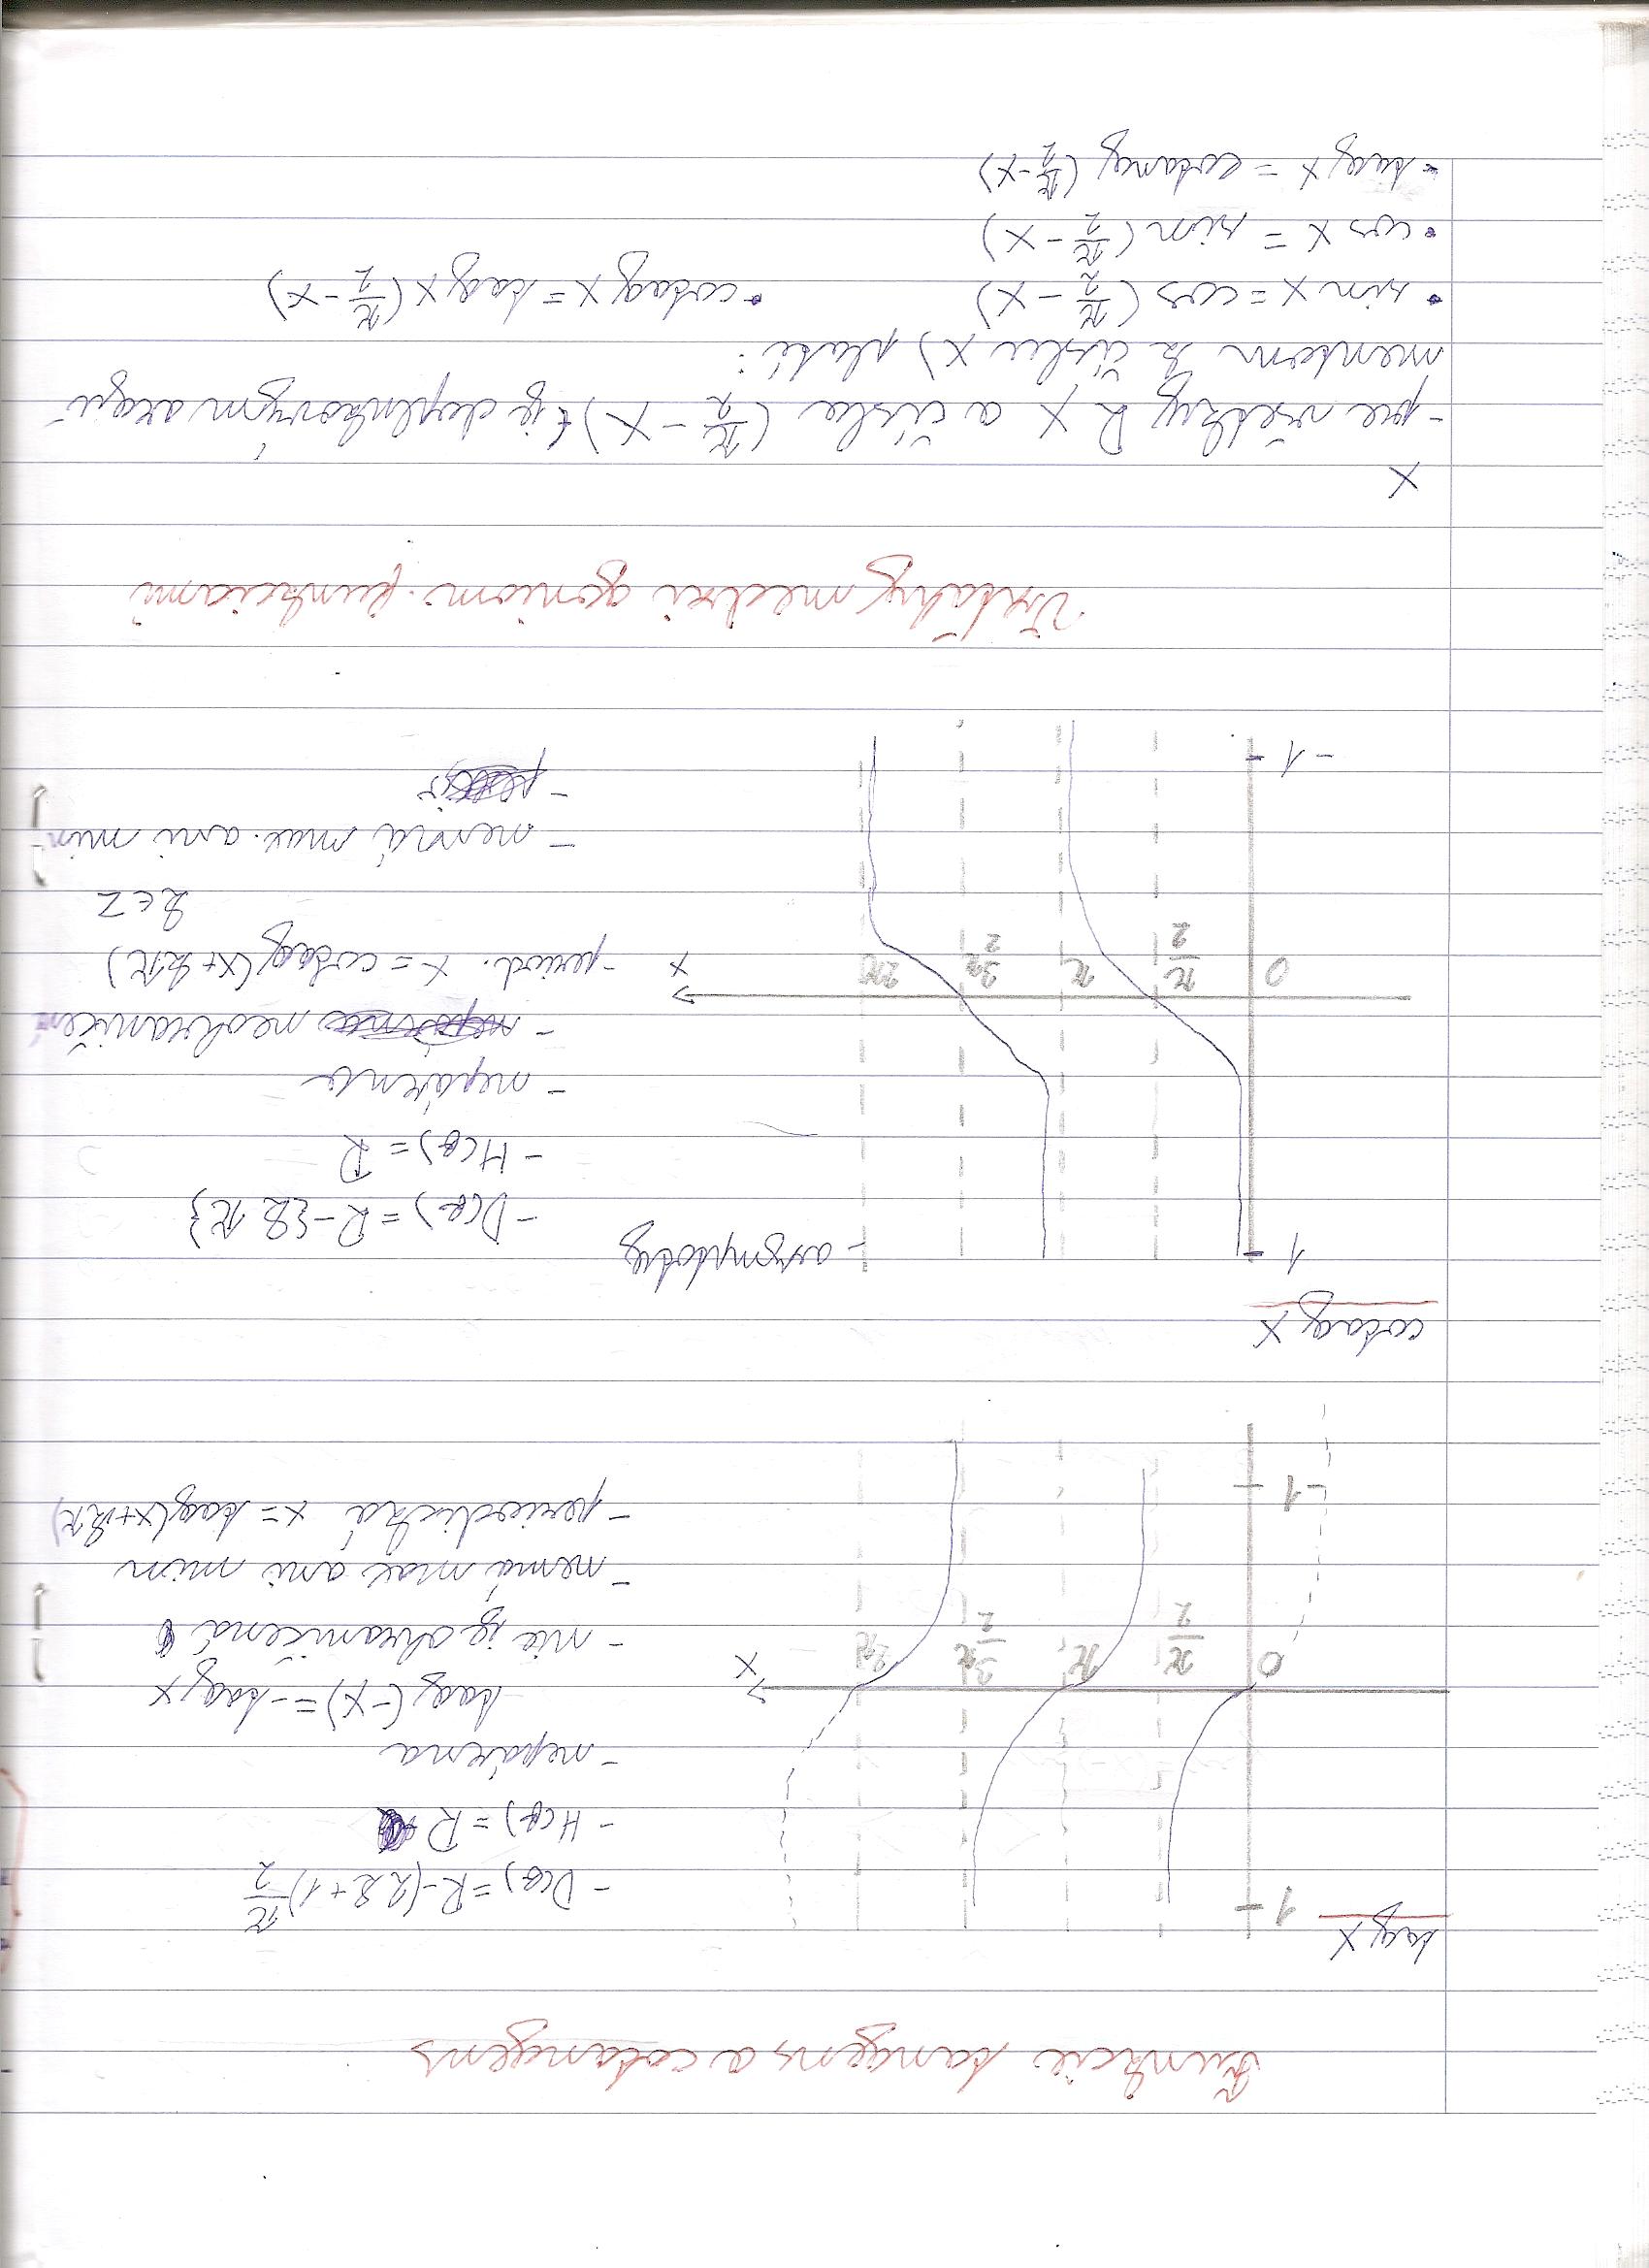 Funkcie tangens a cotangens
tag x
1
- D(f) = R - (2k+1) π/2
- H(f) = R
- nepárna
tag (-x) = - tag x
0 π/2 π 3π/2 2π x
- nie je ohraničená
- nemá max ani min
-1
- periodická x = tag (x+kπ)
cotag x
1
- asymptoty
- D(f) = R - {k π}
- H(f) = R
- nepárna
- neohraničená
0 π/2 π 3π/2 2π x
- period. x = cotag (x+kπ)
k ∈ Z
- nemá max. ani min
-1
Vzťahy medzi goniom. funkciami
x
- pre všetky R x a čísla (π/2 - x) (je doplnkovým argu
mentom k číslu x) platí:
• sin x = cos (π/2 - x) • cotag x = tag x (π/2 - x)
• cos x = sin (π/2 - x)
• tag x = cotang (π/2 - x)